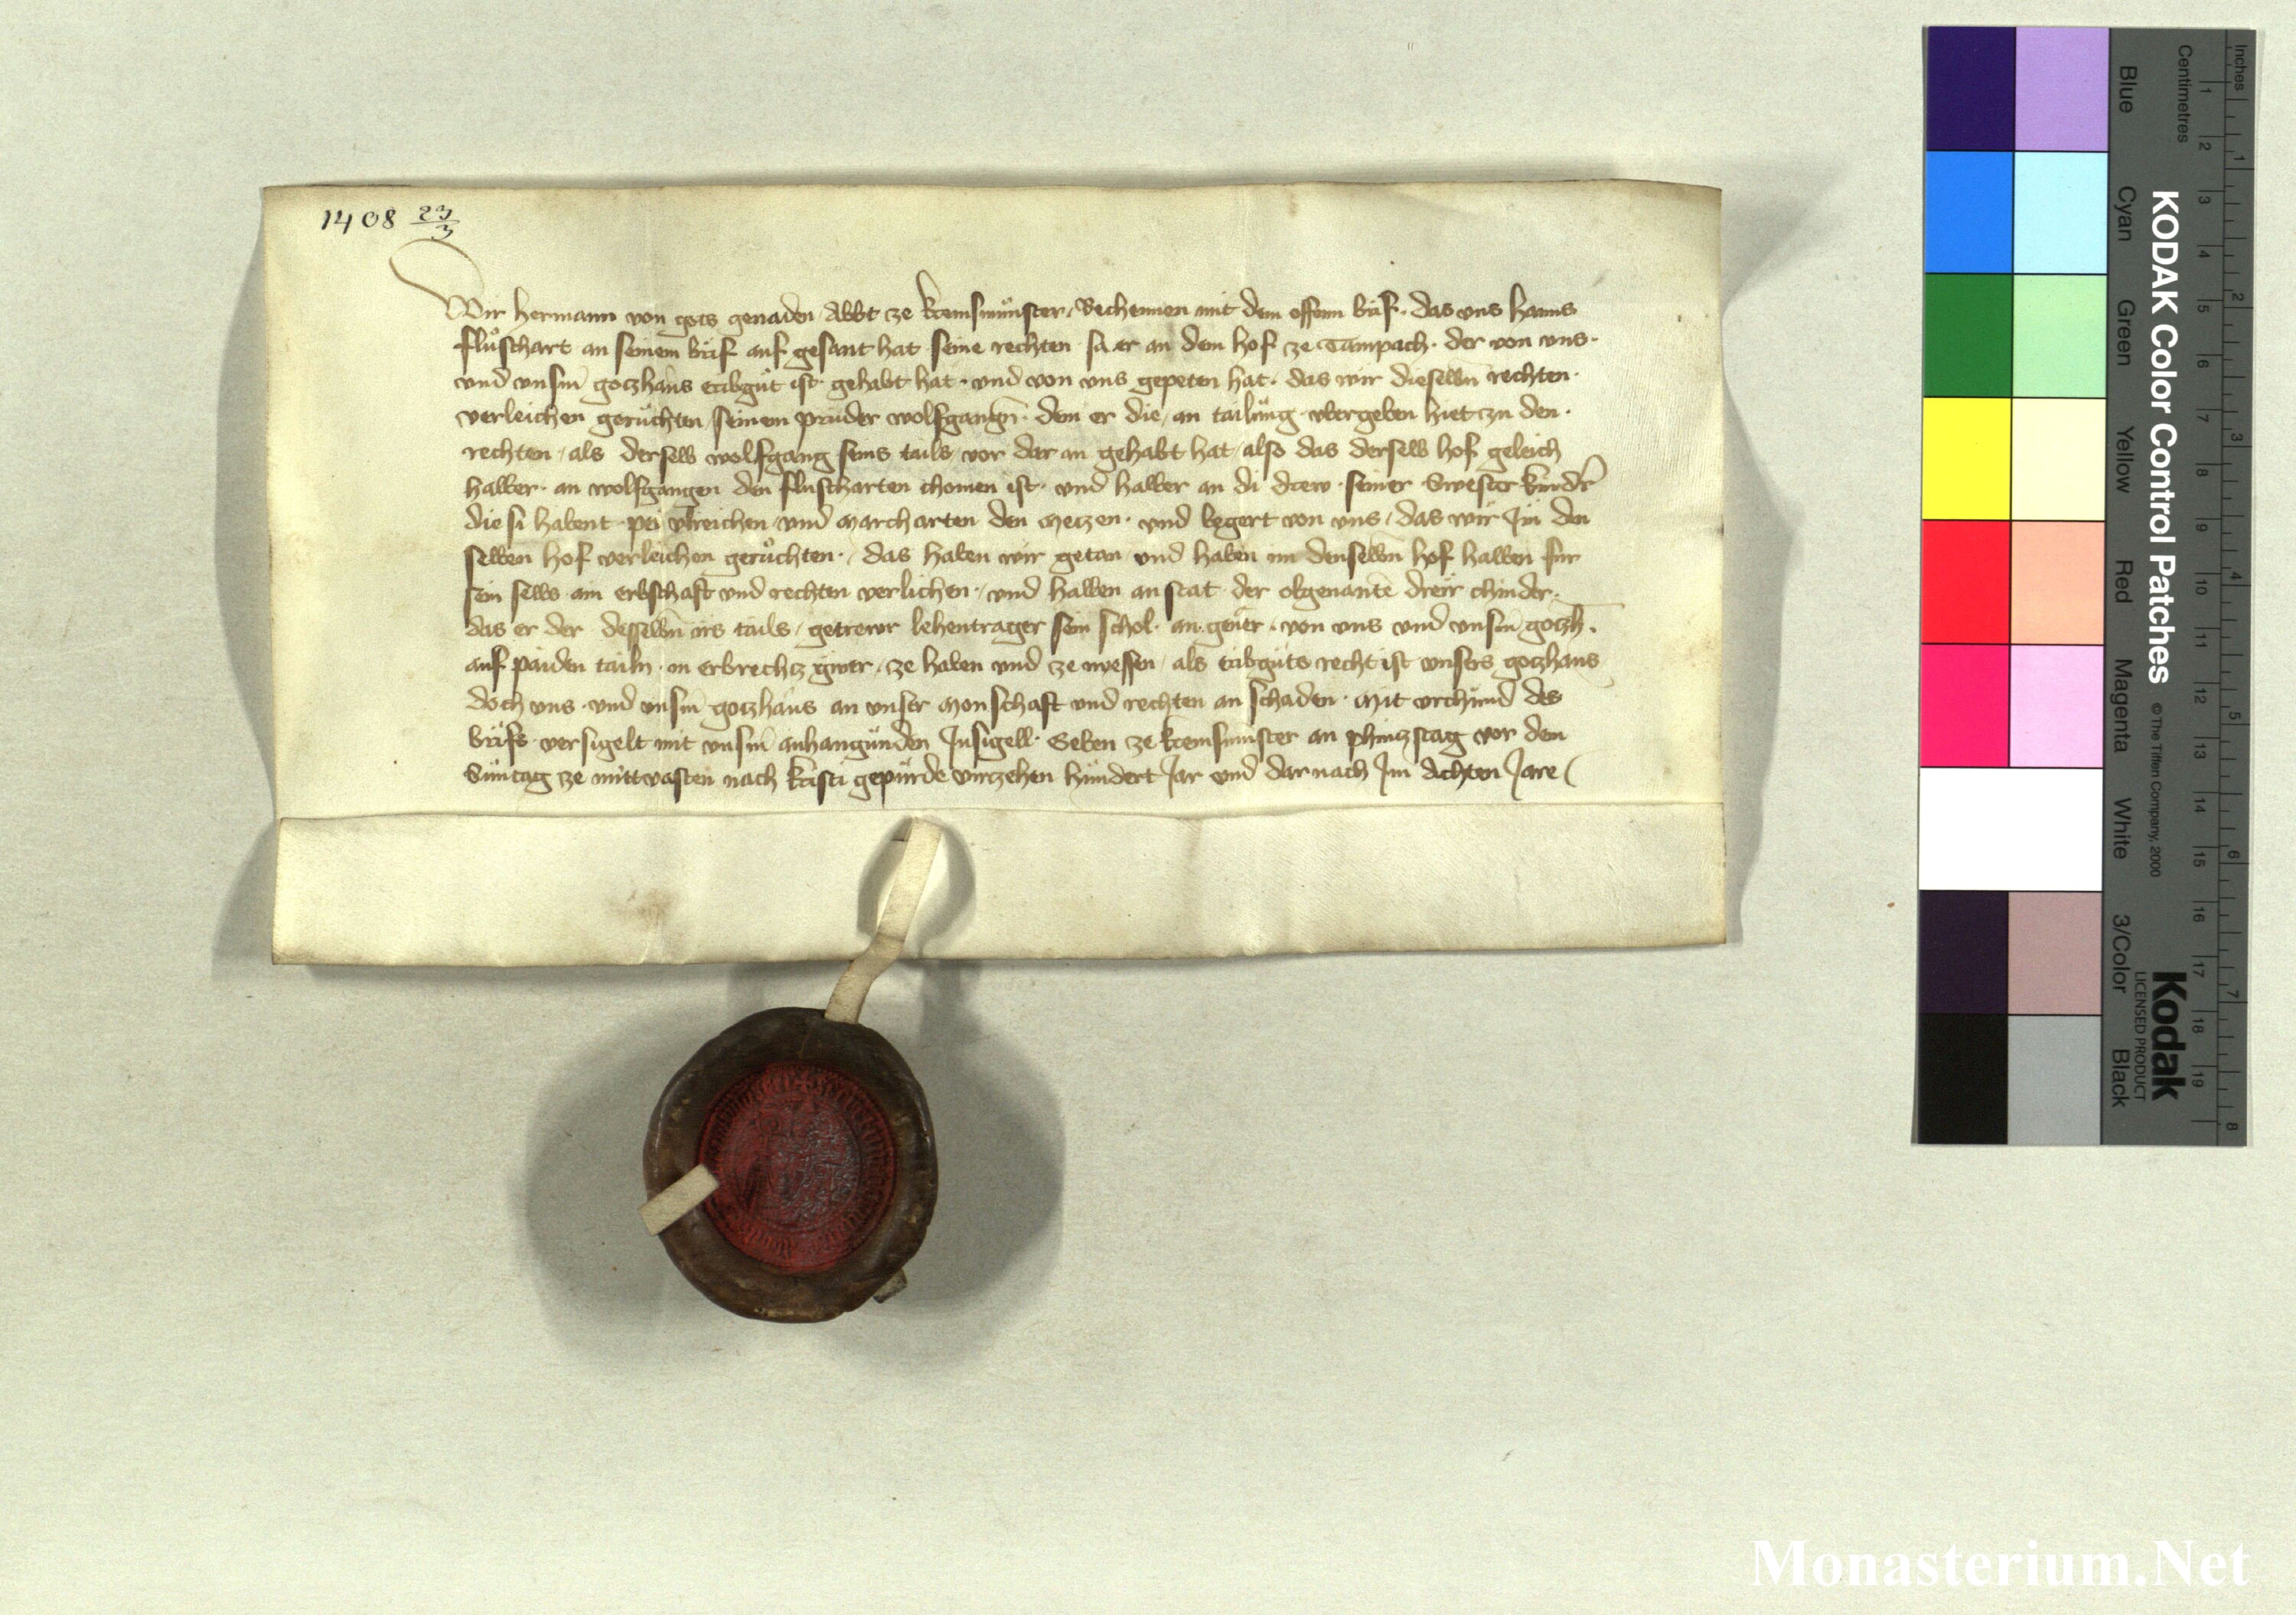 1408 23/3
Wir Hermann von gots genaden Abbt ze Kremsmünster Bechennen mit dem offenn brif · das uns Hanns
Fluschart an seinem brif auf gesant hat seine rechten so er an dem hof ze Tampach · der von uns ·
und unserm gotzhaus eribgut ist gehabt hat · und von uns gepeten hat · das wir dieselbn rechten ·
verleichen geruchten seinem pruder wolfgangn · dem er die an tailung ubergeben hiet zu den ·
rechten als derselb wolfgang seins tails vor dar an gehabt hat also das derselb hof geleich
halber · an wolfgangen den fluscharten chomen ist · und halber an di drew · seiner Swester kinder
die si habent pei Ulreichen und Marcharten den Metzen · und begert von uns das wir Im den
selben hof verleichen geruchten · das haben wir getan und haben im denselbn hof halben für
sein selbs ain erbschaft und rechten verlichen · und halben an stat der obgenante dreir chinder ·
das er der desselbn irs tails getrewr lehentrager sein schol · an geuer · von uns und unserm gotzh ·
auf paiden tailn in erbrechtz gwer ze haben und ze messen als eribguts recht ist unsers gotzhaus
doch uns · und unserm gotzhaus an unser Monschaft und rechten an schaden · Mit urchund des
brifs versigelt mit unserm anhangunden Insigell · Geben ze Kremsmunster an phintztag vor dem
Suntag ze mittvasten nach Kristi gepurde virzehen hundert Jar und dar nach Im Achten Jare
Inches
Centimetres
KODAK Color Control Patches
© The Tiffen Company, 2000
Kodak
LICENSED PRODUCT
Blue
Cyan
Green
Yellow
Red
Magenta
White
3/Color
Black
1 2 3 4 5 6 7 8 9 10 11 12 13 14 15 16 17 18 19
1 2 3 4 5 6 7 8
Monasterium.Net